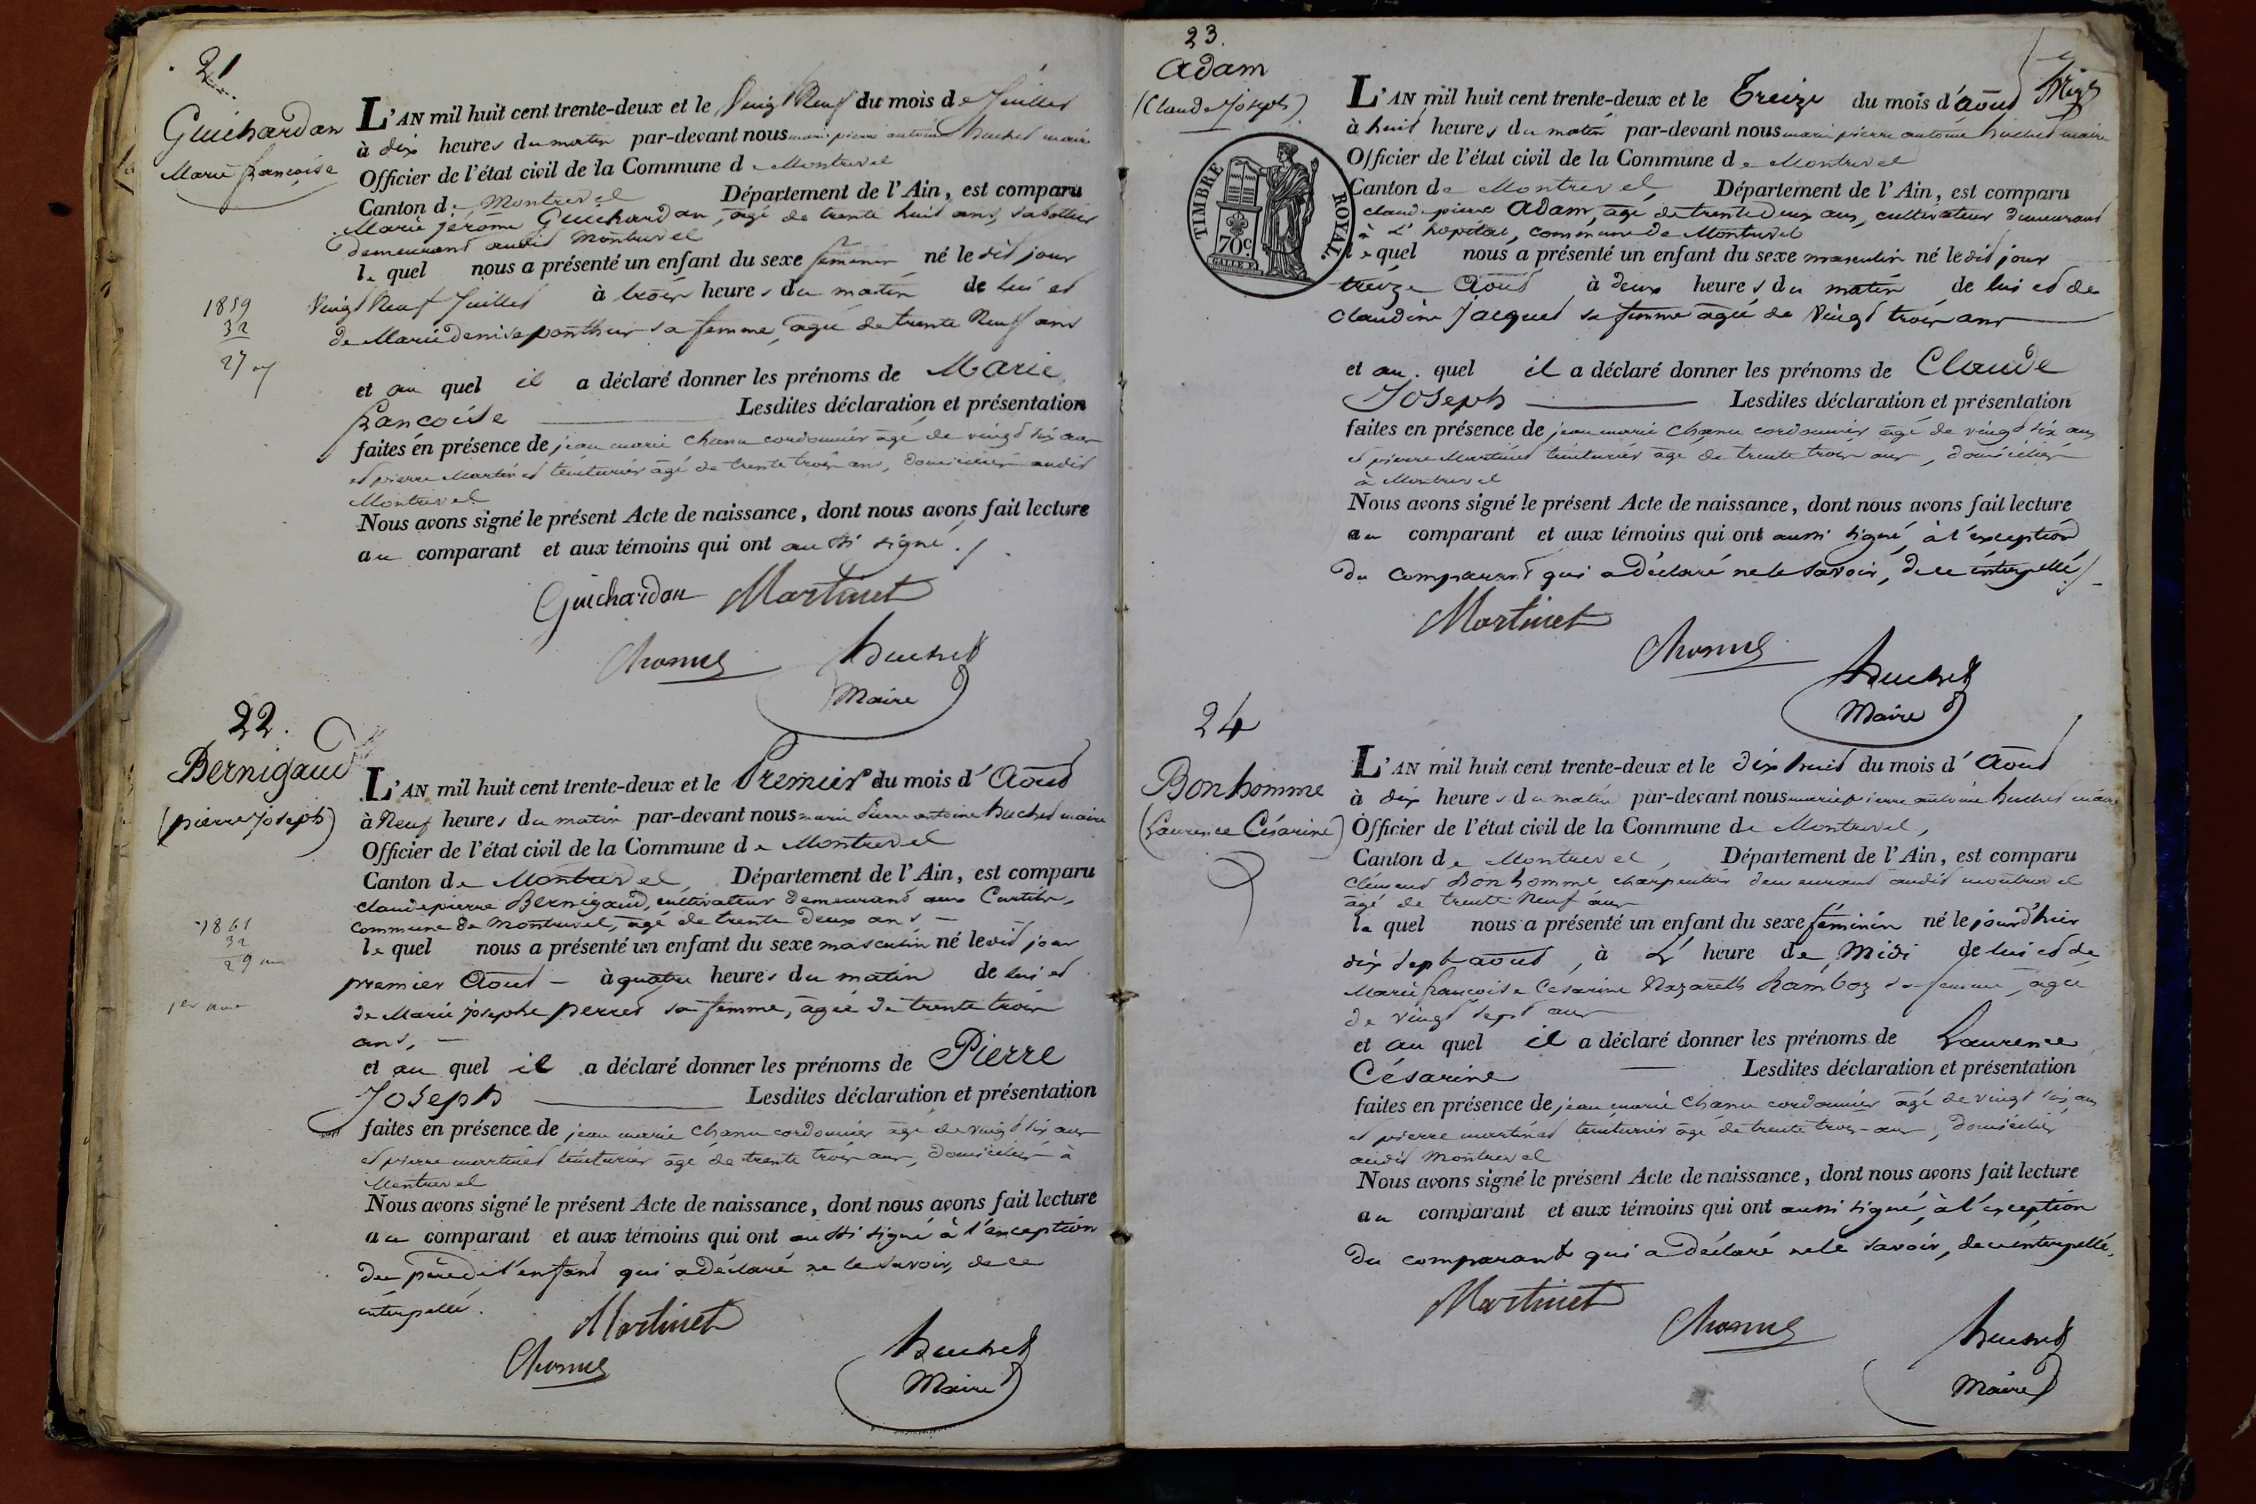 21
Guichardan
Marie françoise
L'AN mil huit cent trente-deux et le vingt Neuf du mois de Juillet
à dix heures du matin par-devant nous marie pierre antoine huchet maire
Officier de l'état civil de la Commune de Montrevel
Canton de Montrevel Département de l'Ain, est comparu
Marie jérome Guichardan, agé de trente huit ans, sabottier
demeurant audit Montrevel
le quel nous a présenté un enfant du sexe feminin né le dit jour
vingt Neuf Juillet à trois heures du matin de lui et
de Marie denise ponthus sa femme, agée de trente Neuf ans
et au quel il a déclaré donner les prénoms de Marie
françoise Lesdites déclaration et présentation
faites en présence de jean marie chanu cordonnier agé de vingt six ans
et pierre Martinet teinturier agé de trente trois ans, domiciliés audit
Montrevel
Nous avons signé le présent Acte de naissance, dont nous avons fait lecture
au comparant et aux témoins qui ont aussi signé.
Guichardan Martinet
Chanu huchet
Maire
1859
32
27
22.
Bernigaud
(pierre joseph)
L'AN mil huit cent trente-deux et le Premier du mois d'Août
à Neuf heures du matin par-devant nous marie pierre antoine huchet maire
Officier de l'état civil de la Commune de Montrevel
Canton de Montrevel Département de l'Ain, est comparu
claude pierre Bernigaud, cultivateur demeurant aux Curtils,
commune de Montrevel, agé de trente deux ans
le quel nous a présenté un enfant du sexe masculin né ledit jour
premier Août à quatre heures du matin de lui et
de Marie josephe perret sa femme, agée de trente trois
ans,
et au quel il a déclaré donner les prénoms de Pierre
Joseph Lesdites déclaration et présentation
faites en présence de jean marie chanu cordonnier agé de vingt six ans
et pierre martinet teinturier agé de trente trois ans, domiciliés à
Montrevel
Nous avons signé le présent Acte de naissance, dont nous avons fait lecture
au comparant et aux témoins qui ont aussi signé à l'exception
du père de l'enfant qui a déclaré ne le savoir, de ce
interpellé.
Martinet
Chanu huchet
Maire
1861
32
29 ans
23.
Adam
(Claude Joseph)
TIMBRE ROYAL
70c.
L'AN mil huit cent trente-deux et le Treize du mois d'août
à huit heures du matin par-devant nous marie pierre antoine huchet maire
Officier de l'état civil de la Commune de Montrevel
Canton de Montrevel, Département de l'Ain, est comparu
claude pierre Adam, agé de trente deux ans, cultivateur demeurant
à L'hopital, commune de Montrevel
le quel nous a présenté un enfant du sexe masculin né ledit jour
treize Août à deux heures du matin de lui et de
Claudine Jacquet sa femme agée de vingt trois ans
et au quel il a déclaré donner les prénoms de Claude
Joseph Lesdites déclaration et présentation
faites en présence de jean marie chanu cordonnier agé de vingt six ans
et pierre Martinet teinturier agé de trente trois ans, domiciliés
à Montrevel
Nous avons signé le présent Acte de naissance, dont nous avons fait lecture
au comparant et aux témoins qui ont aussi signé, à l'exception
du comparant qui a déclaré ne le savoir, de ce interpellé
Martinet
Chanu
huchet
Maire
24
Bonhomme
(Laurence Césarine)
L'AN mil huit cent trente-deux et le dix huit du mois d'Août
à dix heures du matin par-devant nous marie pierre antoine huchet maire
Officier de l'état civil de la Commune de Montrevel,
Canton de Montrevel, Département de l'Ain, est comparu
Clément Bonhomme charpentier demeurant audit montrevel
agé de trente Neuf ans
le quel nous a présenté un enfant du sexe féminin né le jourd'hier
dix sept août, à L' heure de Midi de lui et de
Marie françoise Cesarine Nazareth Ramboz sa femme, agée
de vingt sept ans
et au quel il a déclaré donner les prénoms de Laurence
Césarine Lesdites déclaration et présentation
faites en présence de jean marie chanu cordonnier agé de vingt six ans
et pierre martinet teinturier agé de trente trois ans, domiciliés
audit Montrevel
Nous avons signé le présent Acte de naissance, dont nous avons fait lecture
au comparant et aux témoins qui ont aussi signé, à l'exception
du comparant qui a déclaré ne le savoir, de ce interpellé.
Martinet
Chanu huchet
Maire